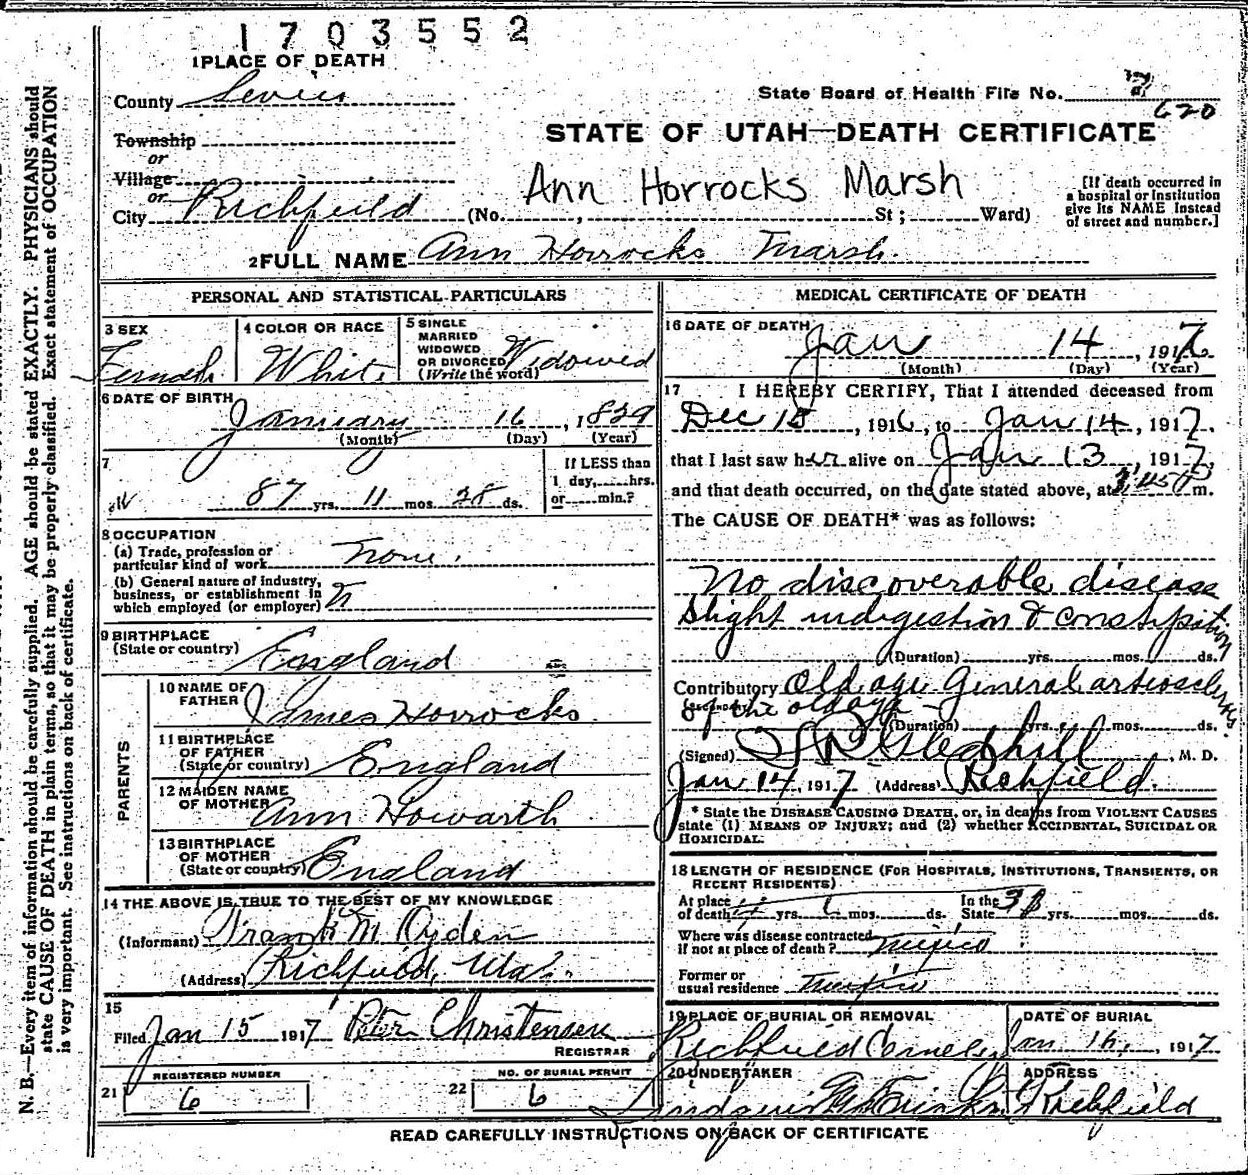 1703552
1 PLACE OF DEATH
County Sevier
State Board of Health File No. 620
Township
or
Village
or
City Richfield (No. , St ; Ward)
STATE OF UTAH—DEATH CERTIFICATE
Ann Horrocks Marsh
[If death occurred in
a hospital or institution
give its NAME instead
of street and number.]
2 FULL NAME Ann Horrocks Marsh.
PERSONAL AND STATISTICAL PARTICULARS
3 SEX
Female
4 COLOR OR RACE
White
5 SINGLE
MARRIED
WIDOWED
OR DIVORCED
(Write the word)
Widowed
6 DATE OF BIRTH
January 16, 1829
(Month) (Day) (Year)
7
87 yrs. 11 mos. 28 ds.
If LESS than
1 day, hrs.
or min.?
8 OCCUPATION
(a) Trade, profession or
particular kind of work None.
(b) General nature of industry,
business, or establishment in
which employed (or employer)
9 BIRTHPLACE
(State or country) England
PARENTS
10 NAME OF
FATHER James Horrocks
11 BIRTHPLACE
OF FATHER
(State or country) England
12 MAIDEN NAME
OF MOTHER Ann Howarth
13 BIRTHPLACE
OF MOTHER
(State or country) England
14 THE ABOVE IS TRUE TO THE BEST OF MY KNOWLEDGE
(Informant) Frank M Ogden
(Address) Richfield, Utah.
15
Filed Jan 15 1917 Peter Christensen
REGISTRAR
REGISTERED NUMBER
21 6
NO. OF BURIAL PERMIT
22 6
MEDICAL CERTIFICATE OF DEATH
16 DATE OF DEATH
Jan 14, 1917
(Month) (Day) (Year)
17 I HEREBY CERTIFY, That I attended deceased from
Dec 15, 1916, to Jan 14, 1917,
that I last saw her alive on Jan 13, 1917,
and that death occurred, on the date stated above, at m.
The CAUSE OF DEATH* was as follows:
No discoverable disease
Slight indigestion & constipation
(Duration) yrs. mos. ds.
Contributory Old age General arteriosclerosis
(SECONDARY) of the old age
(Duration) yrs. mos. ds.
(Signed) , M. D.
Jan 14, 1917 (Address) Richfield.
* State the DISEASE CAUSING DEATH, or, in deaths from VIOLENT CAUSES
state (1) MEANS OF INJURY; and (2) whether ACCIDENTAL, SUICIDAL OR
HOMICIDAL.
18 LENGTH OF RESIDENCE (FOR HOSPITALS, INSTITUTIONS, TRANSIENTS, OR
RECENT RESIDENTS)
At place
of death yrs. mos. ds.
In the
State yrs. mos. ds.
Where was disease contracted
if not at place of death? Mexico
Former or
usual residence Mexico
19 PLACE OF BURIAL OR REMOVAL
Richfield
DATE OF BURIAL
Jan 16, 1917
20 UNDERTAKER
ADDRESS
Richfield
READ CAREFULLY INSTRUCTIONS ON BACK OF CERTIFICATE
N. B.—Every item of information should be carefully supplied. AGE should be stated EXACTLY. PHYSICIANS should
state CAUSE OF DEATH in plain terms, so that it may be properly classified. Exact statement of OCCUPATION
is very important. See instructions on back of certificate.